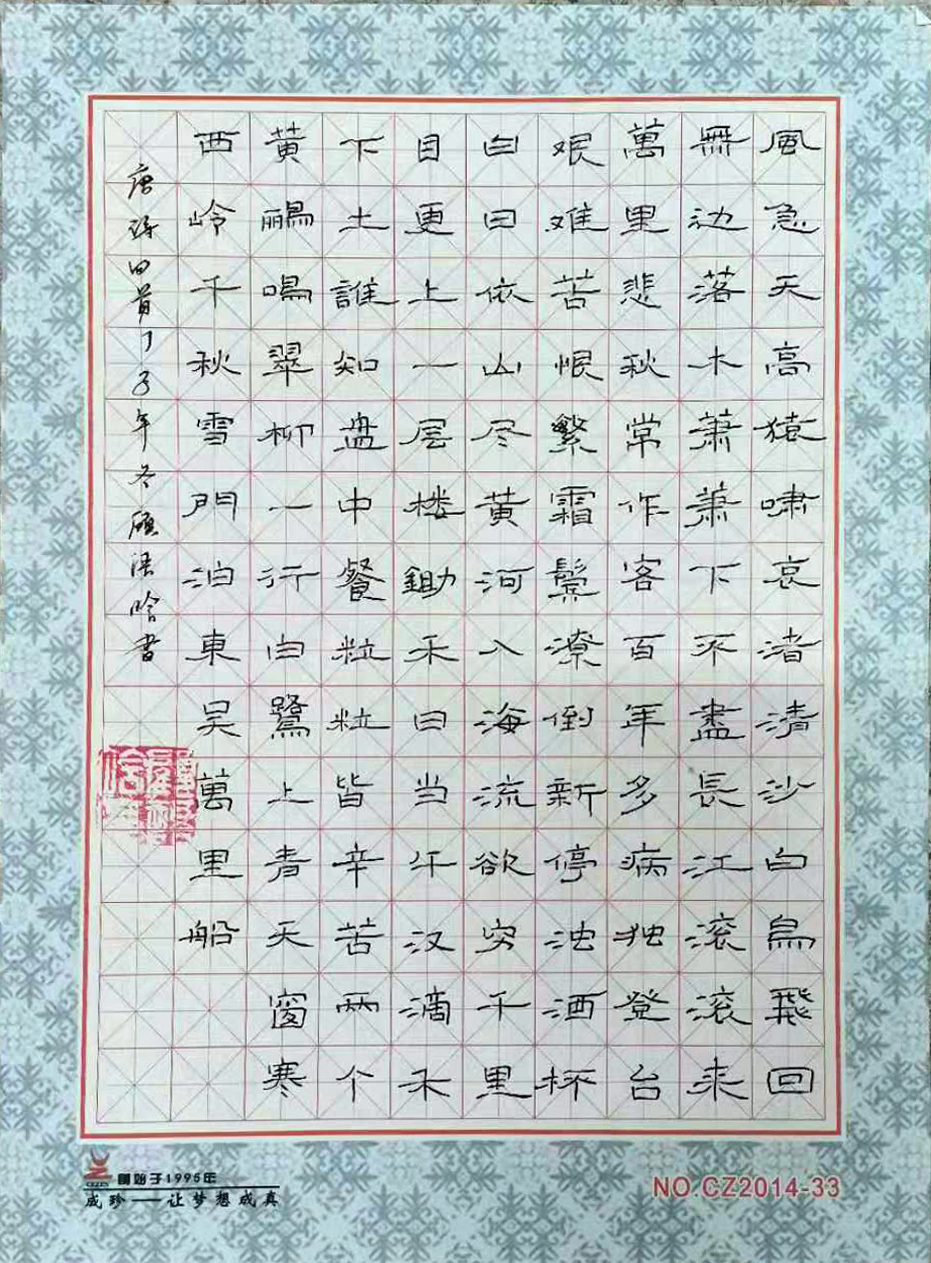 風急天高猿啸哀渚清沙白鳥飛回
無边落木萧萧下不盡長江滚滚来
萬里悲秋常作客百年多病独登台
艰难苦恨繁霜鬓潦倒新停浊酒杯
白日依山尽黄河入海流欲穷千里
目更上一层楼鋤禾日当午汉滴禾
下土誰知盘中餐粒粒皆辛苦两个
黄鹂鳴翠柳一行白鷺上青天窗寒
西岭千秋雪門泊東吴萬里船
唐诗四首 子年冬 书
创始于1995年
成珍——让梦想成真
NO.CZ2014-33